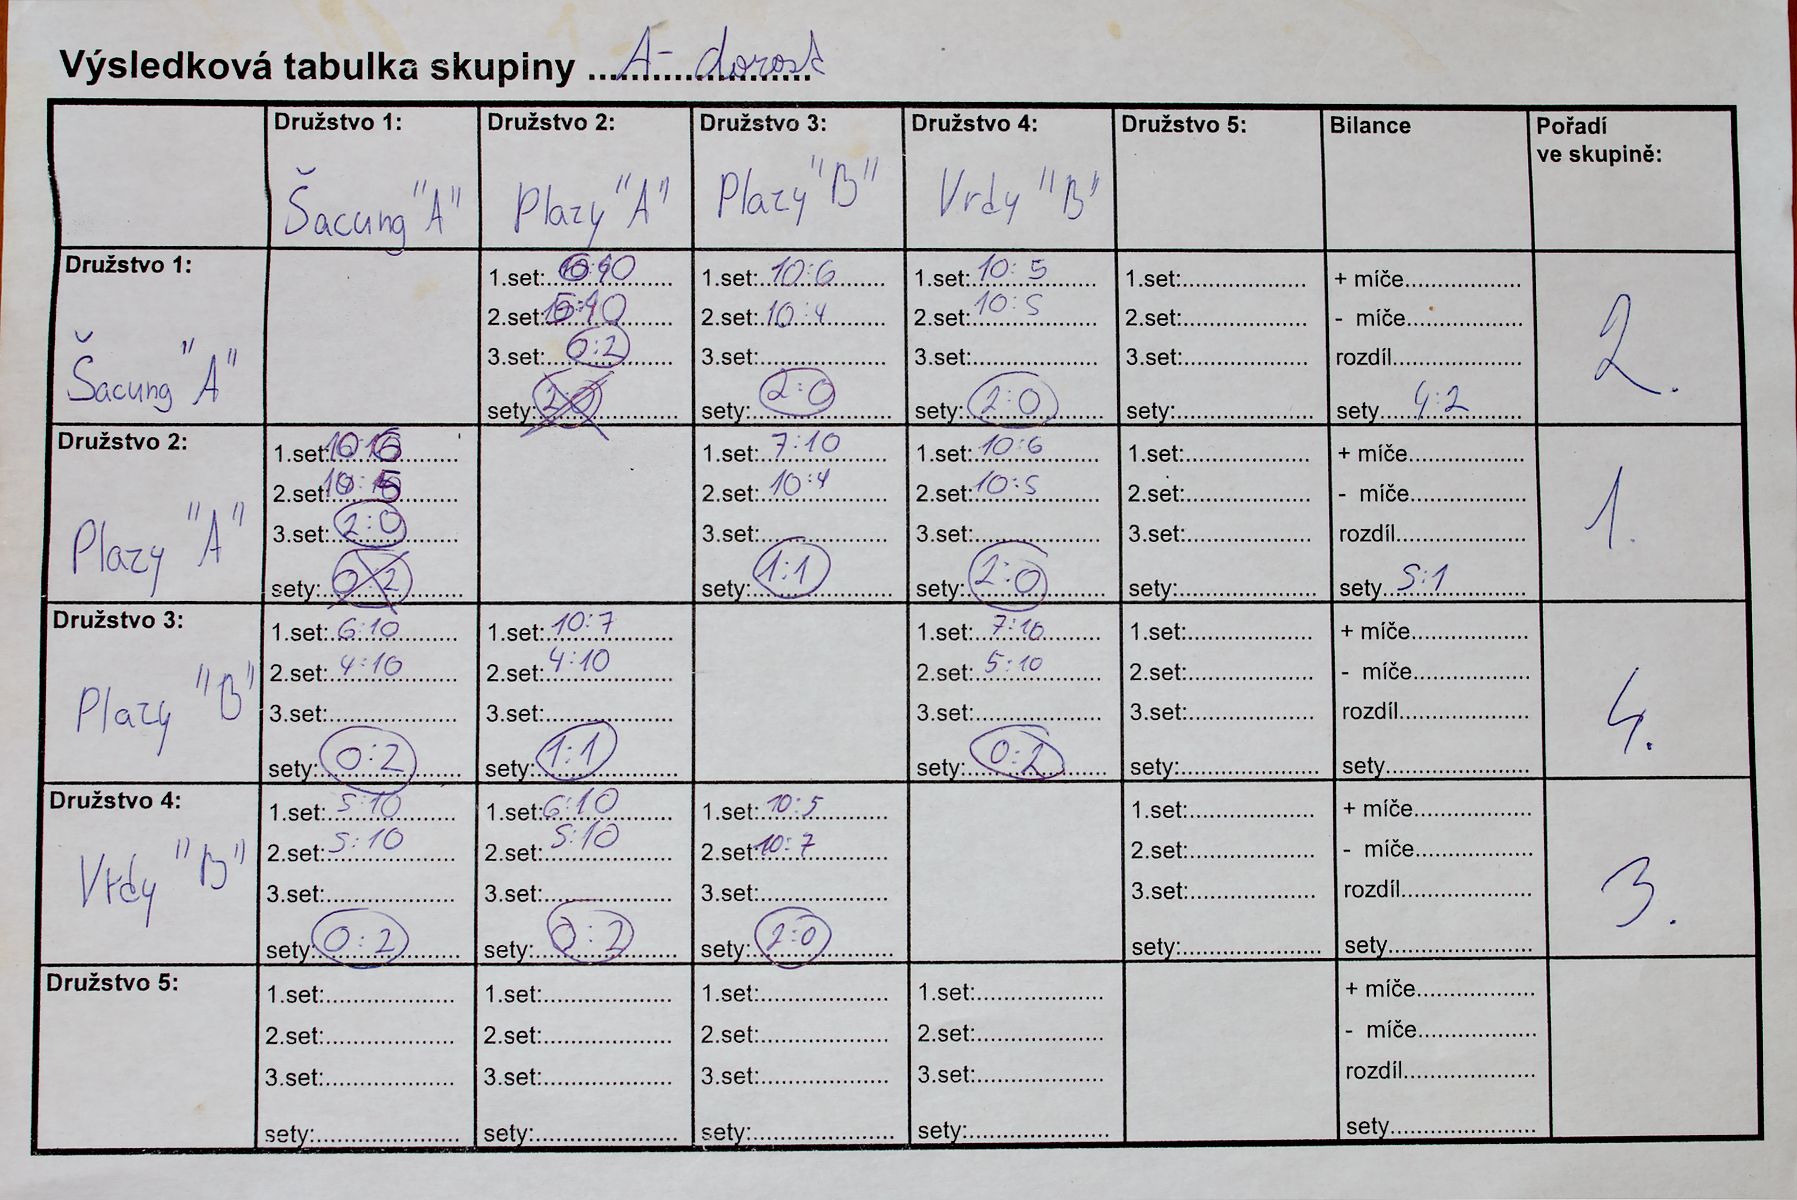 Výsledková tabulka skupiny ..... A- dorost
Družstvo 1: Družstvo 2: Družstvo 3: Družstvo 4: Družstvo 5: Bilance Pořadí
ve skupině:
Šacung "A" Plazy "A" Plazy "B" Vrdy "B"
Družstvo 1:
Šacung "A"
1.set: 6:10
2.set: 5:10
3.set: 0:2
sety: 2:0
1.set: 10:6
2.set: 10:4
3.set:
sety: 2:0
1.set: 10:5
2.set: 10:5
3.set:
sety: 2:0
1.set:
2.set:
3.set:
sety:
+ míče
- míče
rozdíl
sety 4:2
2.
Družstvo 2:
Plazy "A"
1.set: 10:6
2.set: 10:5
3.set: 2:0
sety: 0:2
1.set: 7:10
2.set: 10:4
3.set:
sety: 1:1
1.set: 10:6
2.set: 10:5
3.set:
sety: 2:0
1.set:
2.set:
3.set:
sety:
+ míče
- míče
rozdíl
sety 5:1
1.
Družstvo 3:
Plazy "B"
1.set: 6:10
2.set: 4:10
3.set:
sety: 0:2
1.set: 10:7
2.set: 4:10
3.set:
sety: 1:1
1.set: 7:10
2.set: 5:10
3.set:
sety: 0:2
1.set:
2.set:
3.set:
sety:
+ míče
- míče
rozdíl
sety
4.
Družstvo 4:
Vrdy "B"
1.set: 5:10
2.set: 5:10
3.set:
sety: 0:2
1.set: 6:10
2.set: 5:10
3.set:
sety: 0:2
1.set: 10:5
2.set: 10:7
3.set:
sety: 2:0
1.set:
2.set:
3.set:
sety:
+ míče
- míče
rozdíl
sety
3.
Družstvo 5:
1.set:
2.set:
3.set:
sety:
1.set:
2.set:
3.set:
sety:
1.set:
2.set:
3.set:
sety:
1.set:
2.set:
3.set:
sety:
+ míče
- míče
rozdíl
sety